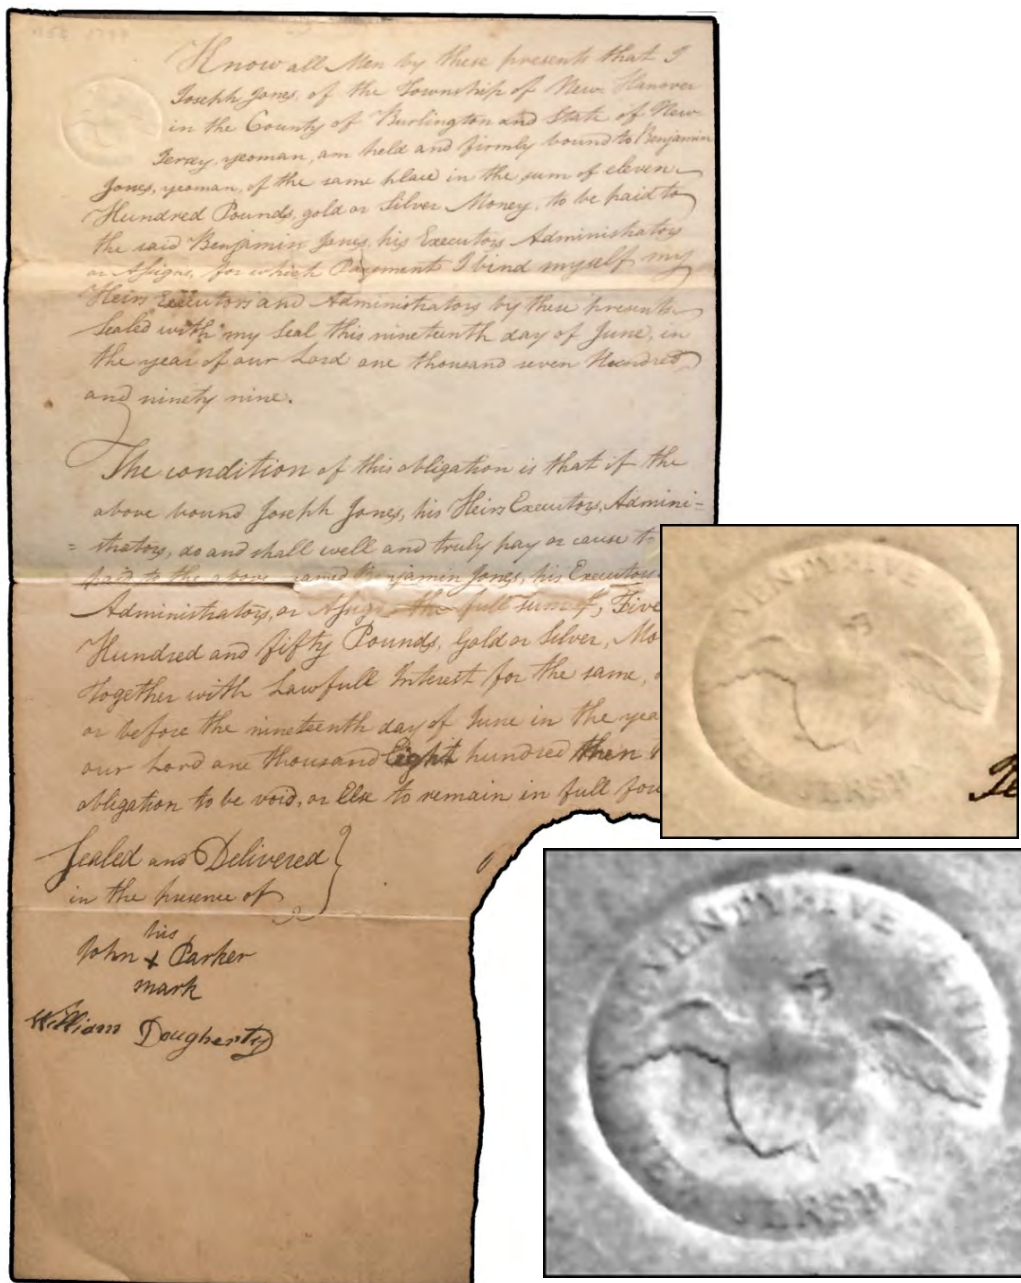 Know all Men by these presents that I
Joseph Jones, of the Township of New Hanover
in the County of Burlington and State of New
Jersey, yeoman, am held and firmly bound to Benjamin
Jones, yeoman, of the same place in the sum of eleven
Hundred Pounds, gold or Silver Money, to be paid to
the said Benjamin Jones, his Executors Administrators
or Assigns, for which Payment I bind myself my
Heirs Executors and Administrators by these presents
Sealed with my Seal this nineteenth day of June, in
the year of our Lord one thousand seven Hundred
and ninety nine.
The condition of this obligation is that if the
above bound Joseph Jones, his Heirs Executors, Admini-
= strators, do and shall well and truly pay or cause to
paid to the above named Benjamin Jones, his Executors
Administrators, or Assigns the full sum of, Five
Hundred and fifty Pounds, Gold or Silver, Mo
together with Lawfull Interest for the same,
or before the nineteenth day of June in the yea
our Lord one thousand Eight hundred then
obligation to be void, or Else to remain in full for
Sealed and Delivered
in the presence of
his
John x Parker
mark
William Dougherty
NEW JERSEY